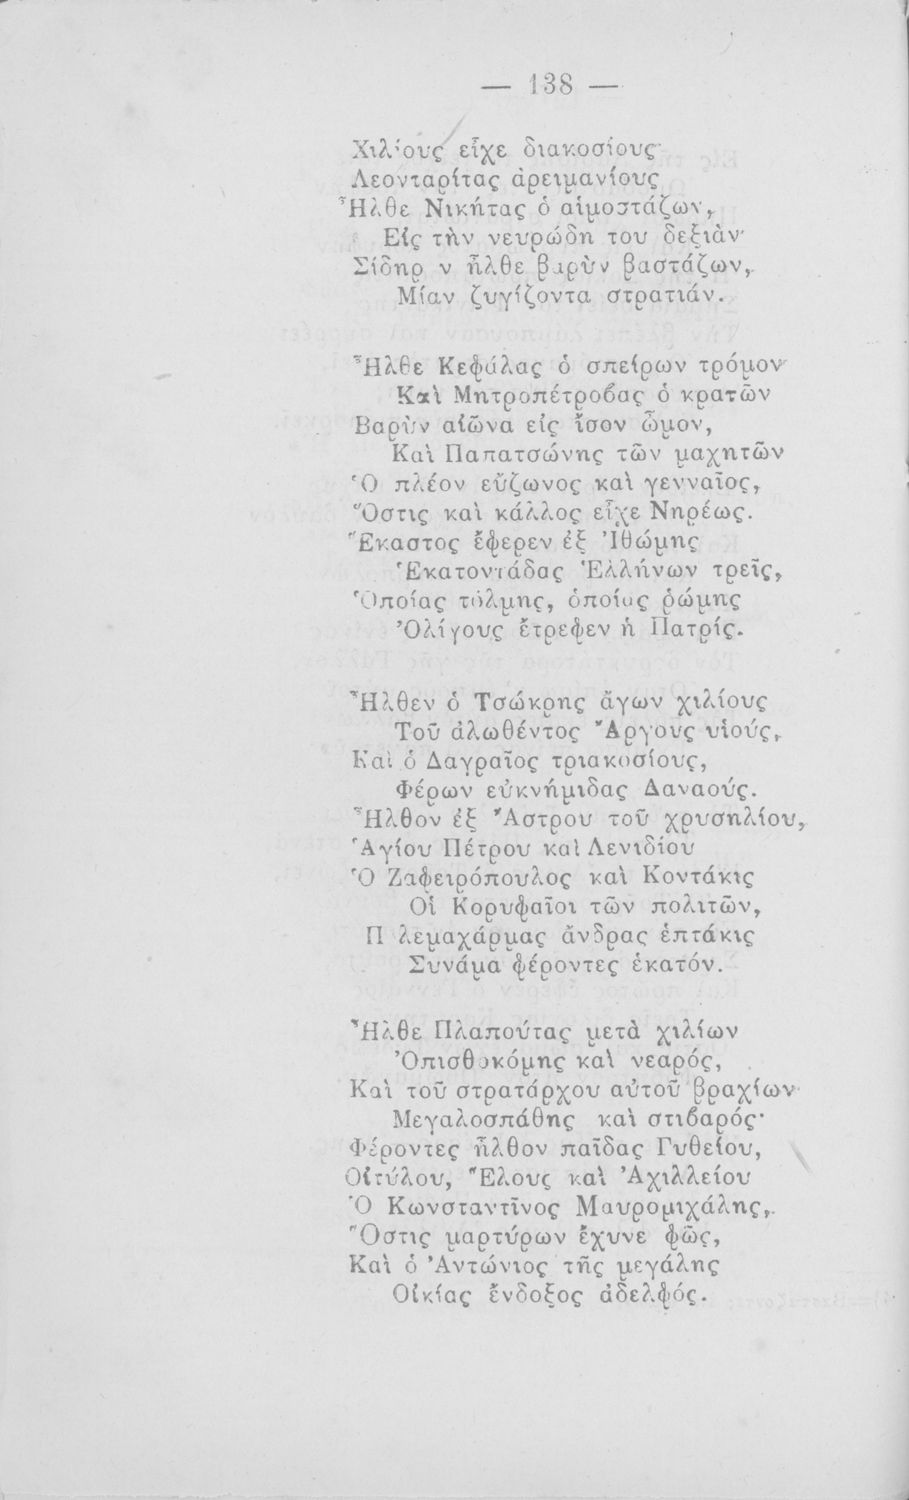 — 138 —
Χιλίους εἶχε διακοσίους
Λεονταρίτας ἀρειμανίους
Ἦλθε Νικήτας ὁ αἱμοστάζων,
Εἰς τὴν νευρώδη του δεξιὰν
Σίδηρ ν ἦλθε βαρὺν βαστάζων,
Μίαν ζυγίζοντα στρατιάν.
Ἦλθε Κεφάλας ὁ σπείρων τρόμον
Καὶ Μητροπέτροβας ὁ κρατῶν
Βαρὺν αἰῶνα εἰς ἴσον ὦμον,
Καὶ Παπατσώνης τῶν μαχητῶν
Ὁ πλέον εὔζωνος καὶ γενναῖος,
Ὅστις καὶ κάλλος εἶχε Νηρέως.
Ἕκαστος ἔφερεν ἐξ Ἰθώμης
Ἑκατοντάδας Ἑλλήνων τρεῖς,
Ὁποίας τόλμης, ὁποίας ῥώμης
Ὀλίγους ἔτρεφεν ἡ Πατρίς.
Ἦλθεν ὁ Τσώκρης ἄγων χιλίους
Τοῦ ἁλωθέντος Ἄργους υἱούς,
Καὶ ὁ Δαγραῖος τριακοσίους,
Φέρων εὐκνήμιδας Δαναούς.
Ἦλθον ἐξ Ἄστρου τοῦ χρυσηλίου,
Ἁγίου Πέτρου καὶ Λενιδίου
Ὁ Ζαφειρόπουλος καὶ Κοντάκις
Οἱ Κορυφαῖοι τῶν πολιτῶν,
Π λεμαχάρμας ἄνδρας ἑπτάκις
Συνάμα φέροντες ἑκατόν.
Ἦλθε Πλαπούτας μετὰ χιλίων
Ὀπισθοκόμης καὶ νεαρός,
Καὶ τοῦ στρατάρχου αὐτοῦ βραχίων
Μεγαλοσπάθης καὶ στιβαρός·
Φέροντες ἦλθον παῖδας Γυθείου,
Οἰτύλου, Ἕλους καὶ Ἀχιλλείου
Ὁ Κωνσταντῖνος Μαυρομιχάλης,
Ὅστις μαρτύρων ἔχυνε φῶς,
Καὶ ὁ Ἀντώνιος τῆς μεγάλης
Οἰκίας ἔνδοξος ἀδελφός.